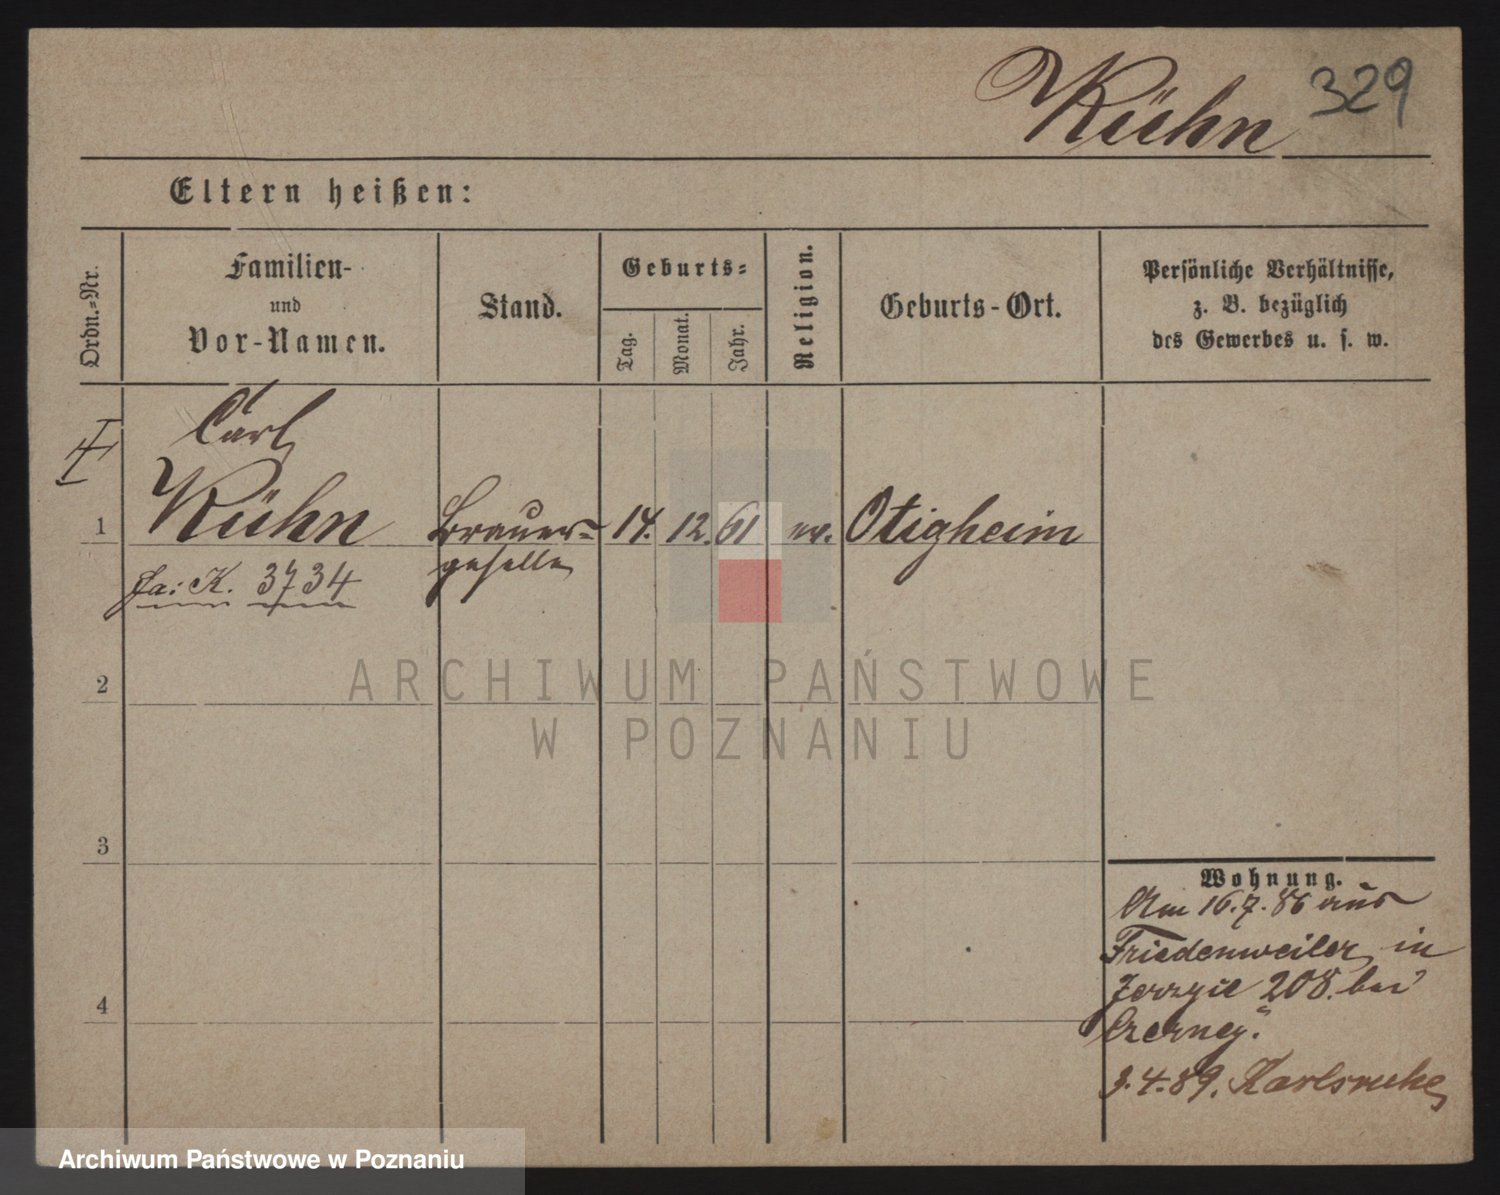 Kühn 329
Eltern heißen:
Ordn.-Nr.
Familien-
und
Vor-Namen.
Stand.
Geburts-
Tag.
Monat.
Jahr.
Religion.
Geburts-Ort.
Persönliche Verhältnisse,
z. B. bezüglich
des Gewerbes u. s. w.
Carl
1 Kühn Brauer- 14. 12. 61 ev. Otigheim
geselle
Fa: K. 3734
2
3
4
Wohnung.
Am 16.7.86 aus
Friedenweiler in
Jerzyce 208. bei
Czerney.
3.4.89. Karlsruhe
ARCHIWUM PAŃSTWOWE
W POZNANIU
Archiwum Państwowe w Poznaniu